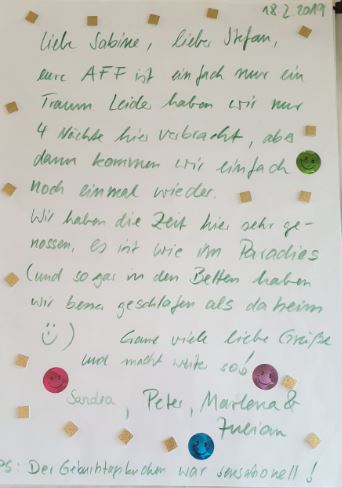 18.2.2019
Liebe Sabine, lieber Stefan,
eure AFF ist einfach nur ein
Traum. Leider haben wir nur
4 Nächte hier verbracht, aber
dann kommen wir einfach
noch einmal wieder.
Wir haben die Zeit hier sehr ge-
nossen, es ist wie im Paradies
(und sogar in den Betten haben
wir besser geschlafen als daheim
☺) Ganz viele liebe Grüße
und macht weiter so!
Sandra, Peter, Marlena &
Julian
PS: Der Geburtstagskuchen war sensationell!